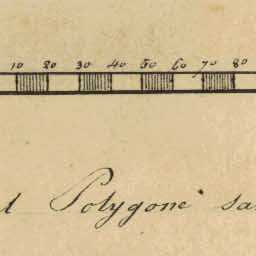 10 20 30 40 50 60 70 80
Polygone